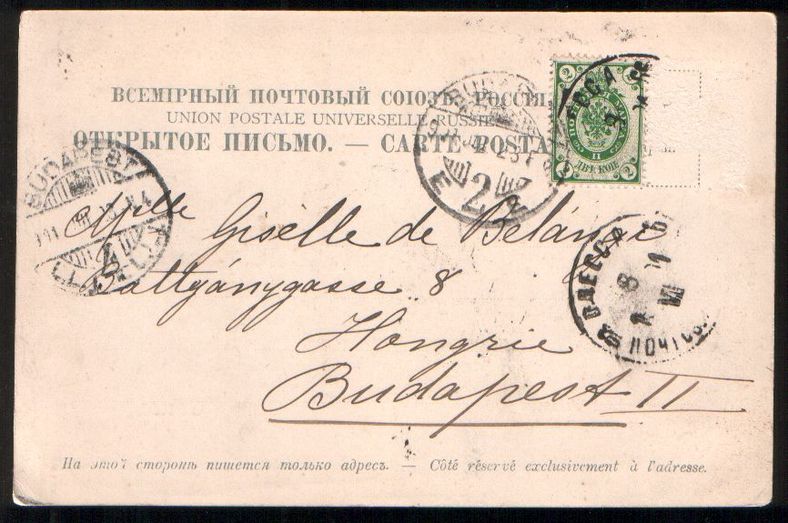 ВСЕМІРНЫЙ ПОЧТОВЫЙ СОЮЗЪ. РОССІЯ.
UNION POSTALE UNIVERSELLE RUSSIE
ОТКРЫТОЕ ПИСЬМО. — CARTE POSTA
2 2
II
ДВѢ КОП.
2 2
ССА
BUDAPEST
2
BUDAPEST
ОДЕССА
ПОЧТ
Mlle Giselle de Belánsi
Battyánygasse 8
Hongrie
Budapest II
На этой сторонѣ пишется только адресъ. — Côté réservé exclusivement à l'adresse.